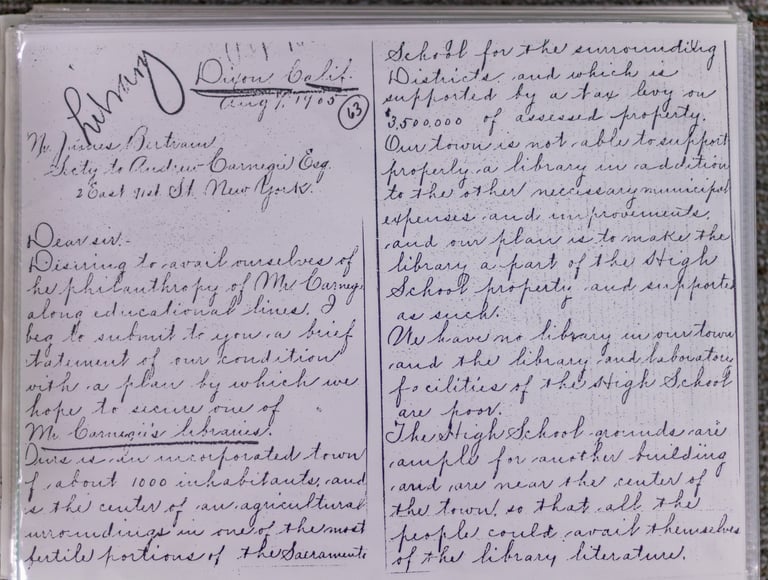 Library
Dixon Calif.
Aug 7, 1905
63
Mr. James Bertram
Secty to Andrew Carnegie Esq.
2 East 91st St. New York.
Dear sir.-
Disiring to avail ourselves of
he philanthropy of Mr Carnegi
along educational lines, I
beg to submit to you a brief
tatement of our condition
with a plan by which we
hope to secure one of
Mr Carnegie's libraries.
Ours is an incorporated town
f about 1000 inhabitants, and
is the center of an agricultural
urroundings in one of the most
fertile portions of the Sacramento
School for the surrounding
Districts, and which is
supported by a tax levy on
$3,500,000 of assessed property.
Our town is not able to support
properly a library in addition
to the other necessary municipal
expenses and improvements,
and our plan is to make the
library a part of the High
School property and supported
as such.
We have no library in our town
and the library and laboratory
facilities of the High School
are poor.
The High School grounds are
ample for another building
and are near the center of
the town, so that all the
people could avail themselves
of the library literature.